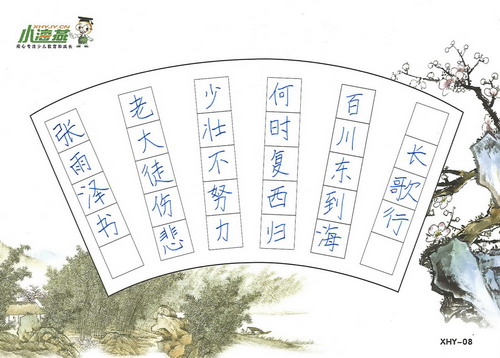 XHY.JY.CN
小海燕
用心专注少儿教育和成长
长歌行
百川东到海
何时复西归
少壮不努力
老大徒伤悲
张雨泽书
XHY-08